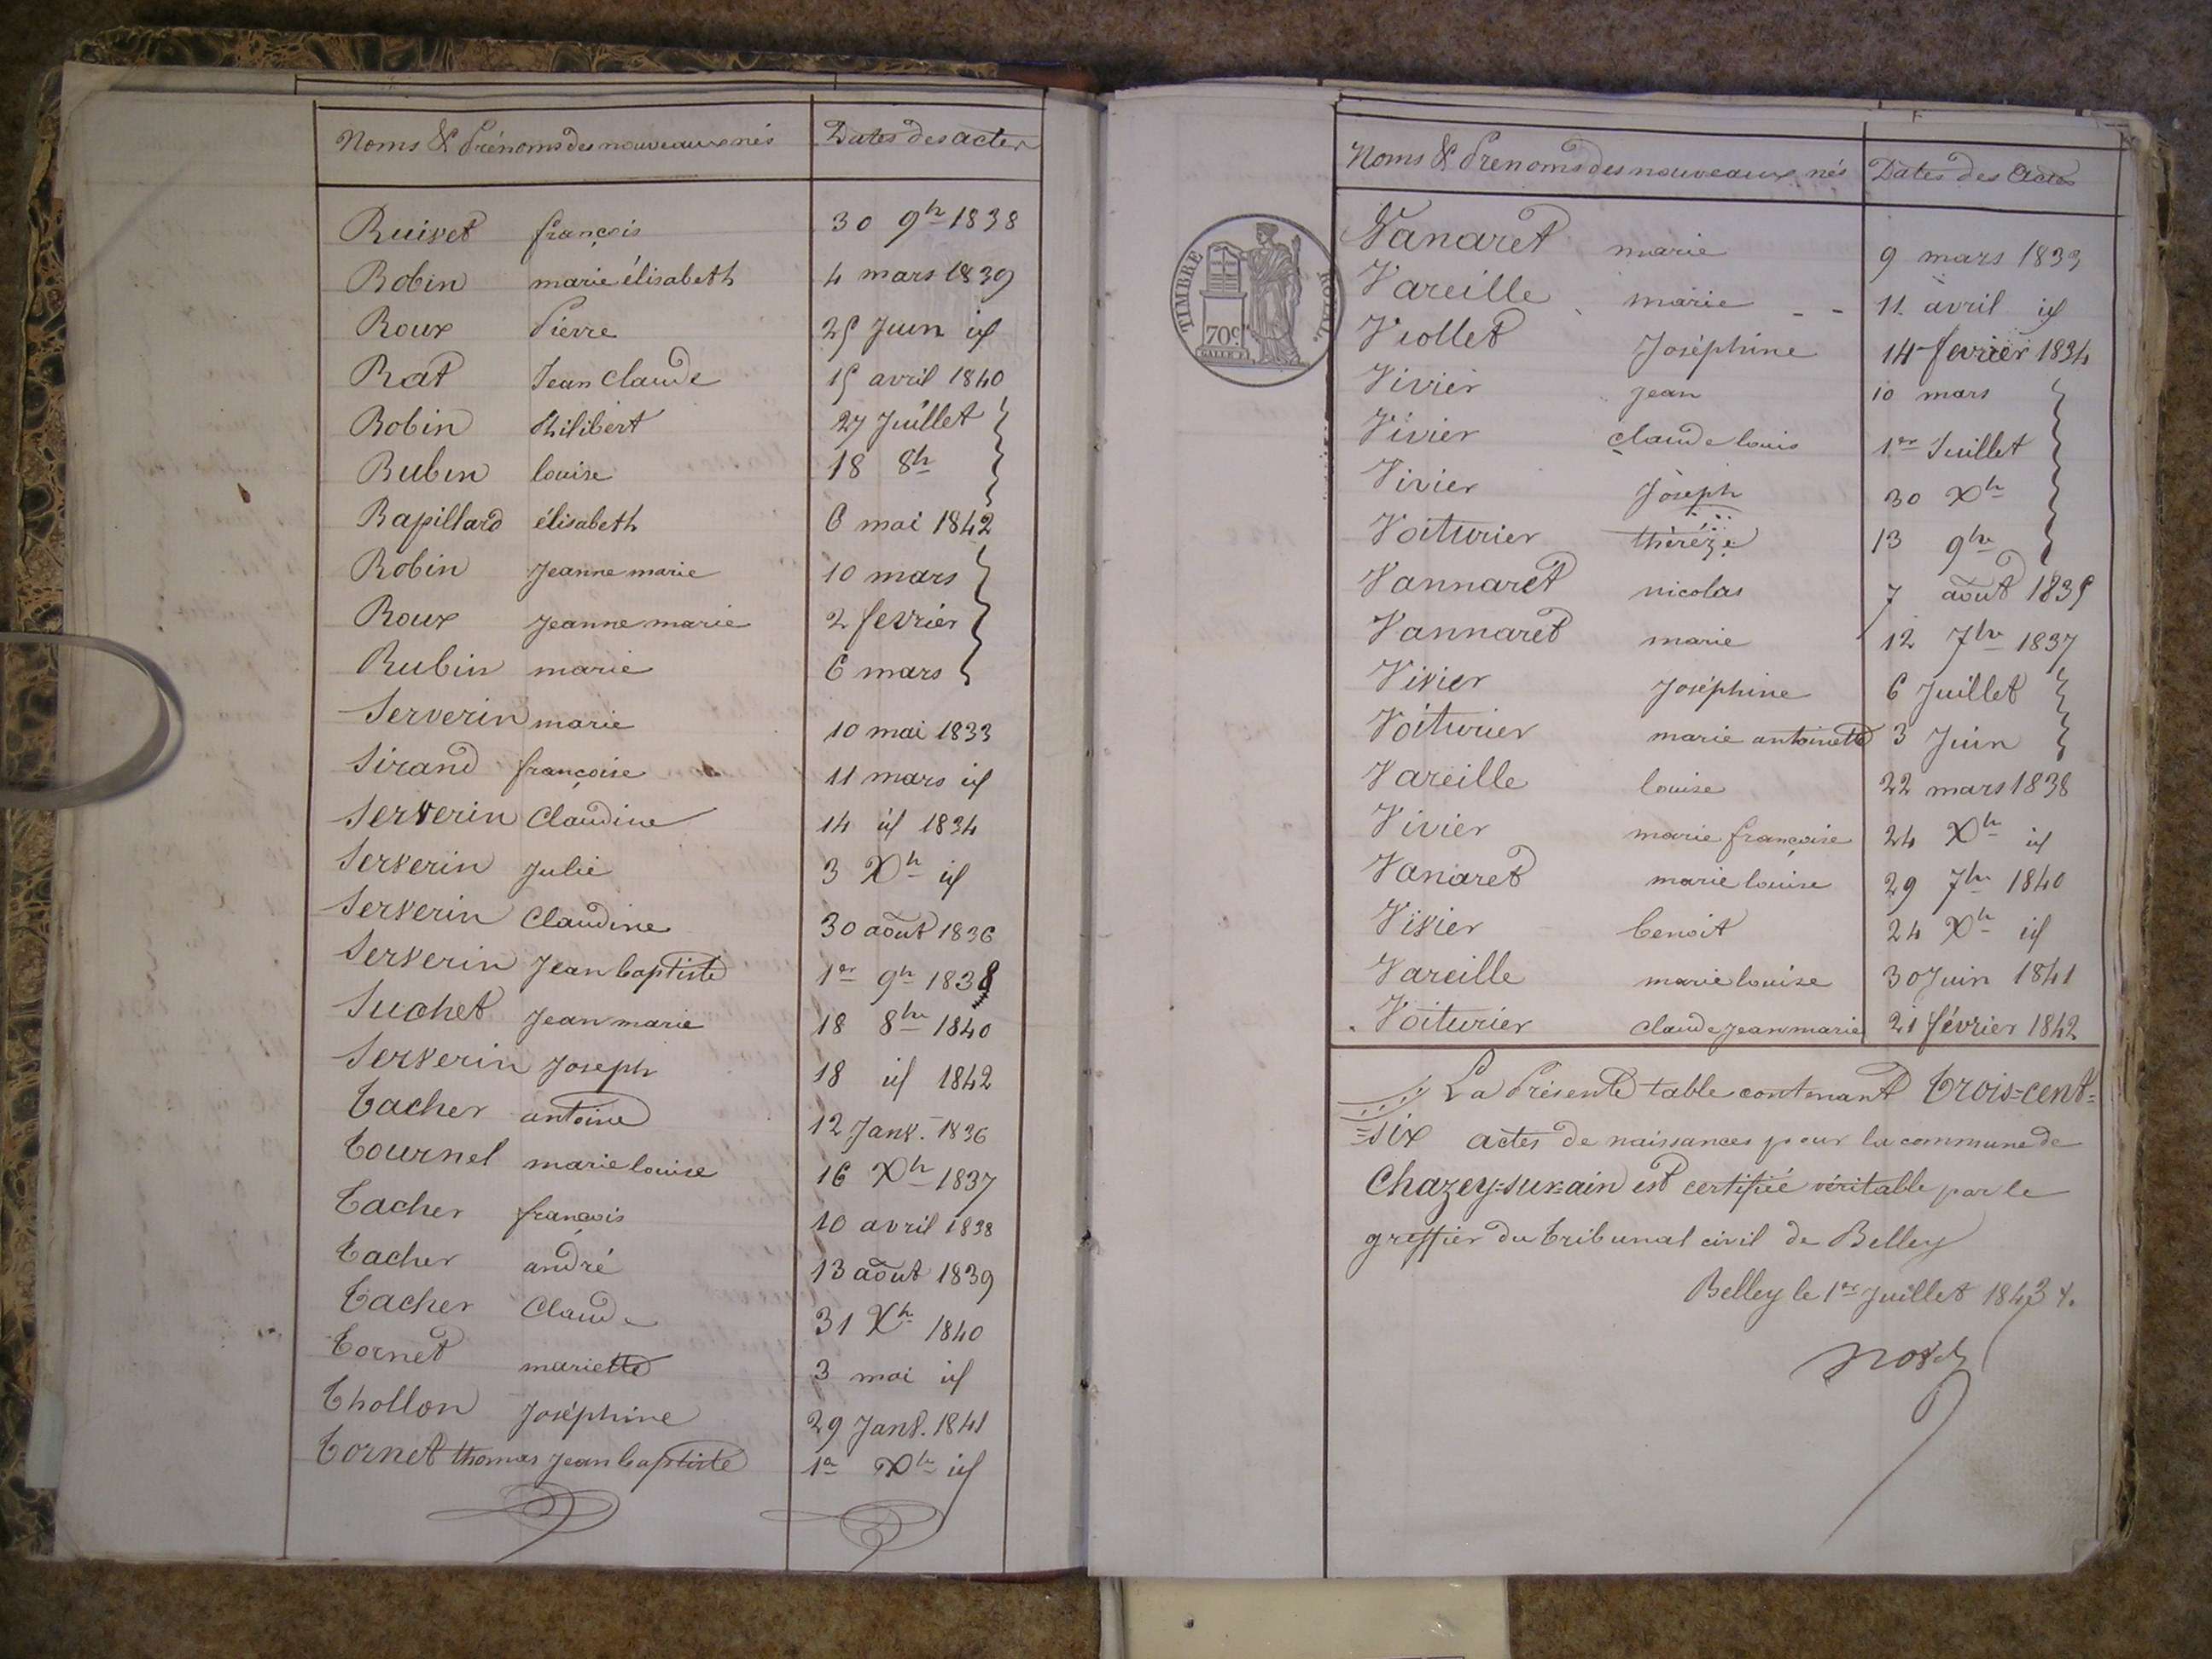 Noms & Prénoms des nouveaux nés Dates des actes
Ruivet françois 30 9bre 1838
Robin marie élisabeth 4 mars 1839
Roux Pierre 25 Juin id
Rat Jean Claude 15 avril 1840
Robin Philibert 27 Juillet
Rubin louise 18 8bre
Rapillard élisabeth 6 mai 1842
Robin Jeanne marie 10 mars
Roux Jeanne marie 2 fevrier
Rubin marie 6 mars
Serverin marie 10 mai 1833
Sirand françoise 11 mars id
Serverin Claudine 14 id 1834
Serverin Julie 3 Xbre id
Serverin Claudine 30 août 1836
Serverin Jean baptiste 1er 9bre 1838
Suchet Jean marie 18 8bre 1840
Serverin Joseph 18 id 1842
Tacher antoine 12 Janv. 1836
Tournel marie louise 16 Xbre 1837
Tacher françois 10 avril 1838
Tacher andré 13 août 1839
Tacher Claude 31 Xbre 1840
Tornet mariette 3 mai id
Thollon Joséphine 29 Janv. 1841
Tornet thomas Jean baptiste 1er Xbre id
Noms & Prenoms des nouveaux nés Dates des Actes
TIMBRE ROYAL.
70c.
Vanaret marie 9 mars 1833
Vareille marie 11 avril id
Viollet Joséphine 14 fevrier 1834
Vivier Jean 10 mars
Vivier claude louis 1er Juillet
Vivier Joseph 30 Xbre
Voiturier thérèze 13 9bre
Vannaret nicolas 7 août 1835
Vannaret marie 12 7bre 1837
Vivier Joséphine 6 Juillet
Voiturier marie antoinette 3 Juin
Vareille louise 22 mars 1838
Vivier marie françoise 24 Xbre id
Vanaret marie louise 29 7bre 1840
Vivier benoit 24 Xbre id
Vareille marie louise 30 Juin 1841
Voiturier claude jean marie 21 février 1842
La Présente table contenant trois=cent=
=six actes de naissances pour la commune de
Chazey=sur=ain est certifiée véritable par le
greffier du tribunal civil de Belley
Belley le 1er Juillet 1843